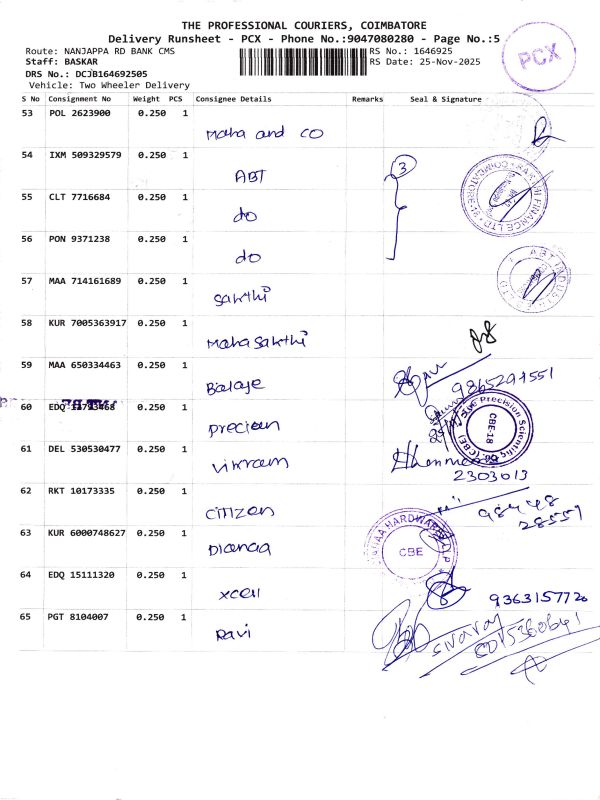 THE PROFESSIONAL COURIERS, COIMBATORE
Delivery Runsheet - PCX - Phone No.:9047080280 - Page No.:5
PCX
Route: NANJAPPA RD BANK CMS
RS No.: 1646925
Staff: BASKAR
RS Date: 25-Nov-2025
DRS No.: DCJB164692505
Vehicle: Two Wheeler Delivery
S No Consignment No Weight PCS Consignee Details Remarks Seal & Signature
53 POL 2623900 0.250 1
Maha and CO
54 IXM 509329579 0.250 1
ABT
3
55 CLT 7716684 0.250 1
do
56 PON 9371238 0.250 1
do
57 MAA 714161689 0.250 1
Sakthi
58 KUR 7005363917 0.250 1
Maha Sakthi
59 MAA 650334463 0.250 1
Balaje
9865291551
60 EDQ 0.250 1
Precision
Precision Scientific
CBE-18
61 DEL 530530477 0.250 1
Vikram
2303013
62 RKT 10173335 0.250 1
Citizen
98448
28557
63 KUR 6000748627 0.250 1
Dianaa
HARDWARE
CBE
64 EDQ 15111320 0.250 1
Xcell
9363157720
65 PGT 8104007 0.250 1
Ravi
Sivaraj